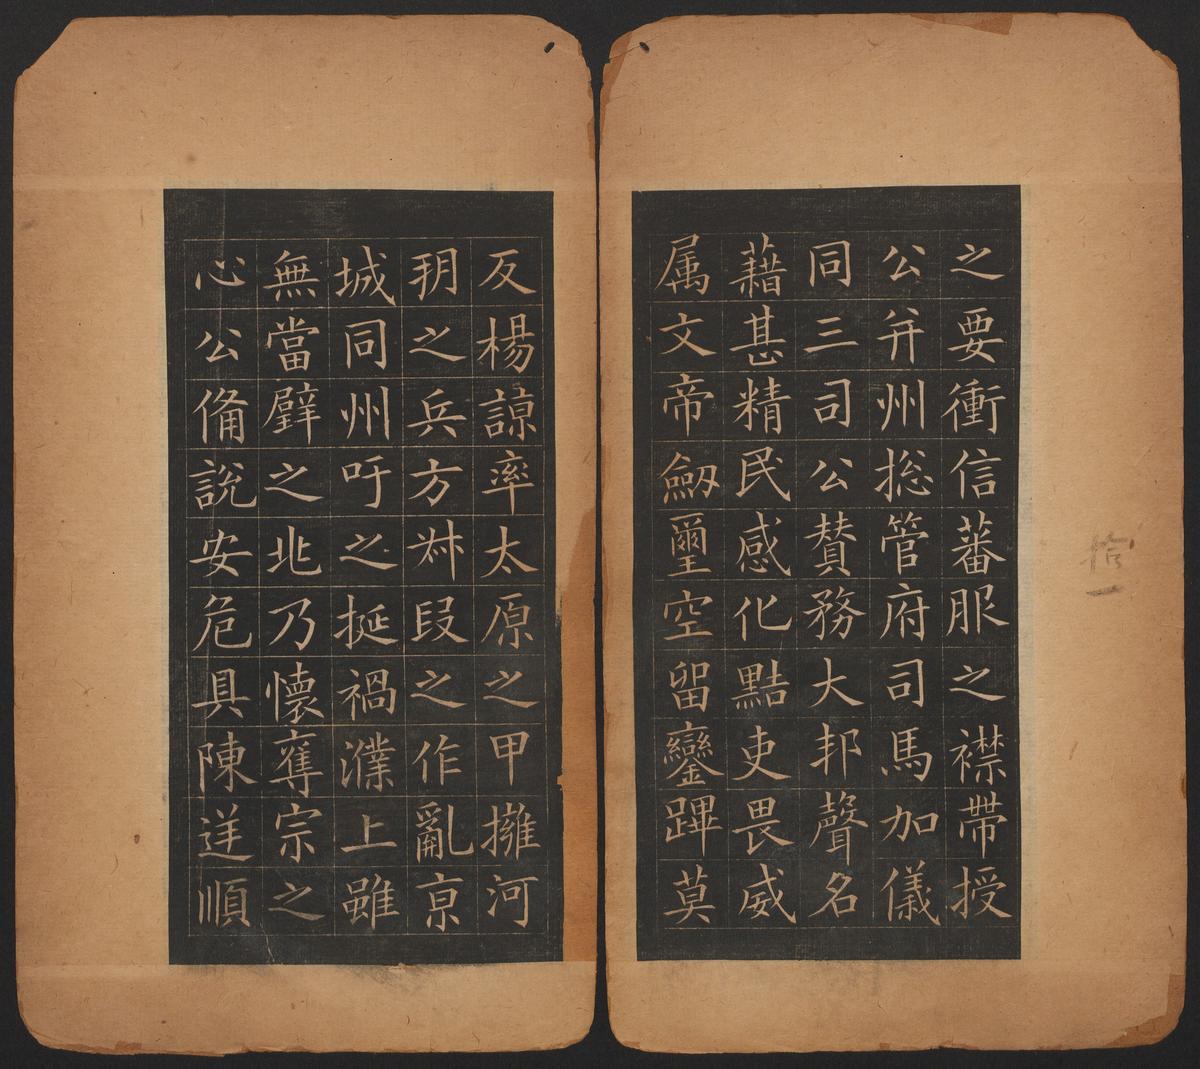 之要衝信蕃服之襟帶授
公并州捴管府司馬加儀
同三司公賛務大邦聲名
藉甚精民感化黠吏畏威
属文帝劒璽空留鑾蹕莫
反楊諒率太原之甲擁河
朔之兵方叔段之作亂亰
城同州吁之挻禍濮上雖
無當璧之兆乃懷奪宗之
心公備說安危具陳逆順
拾一